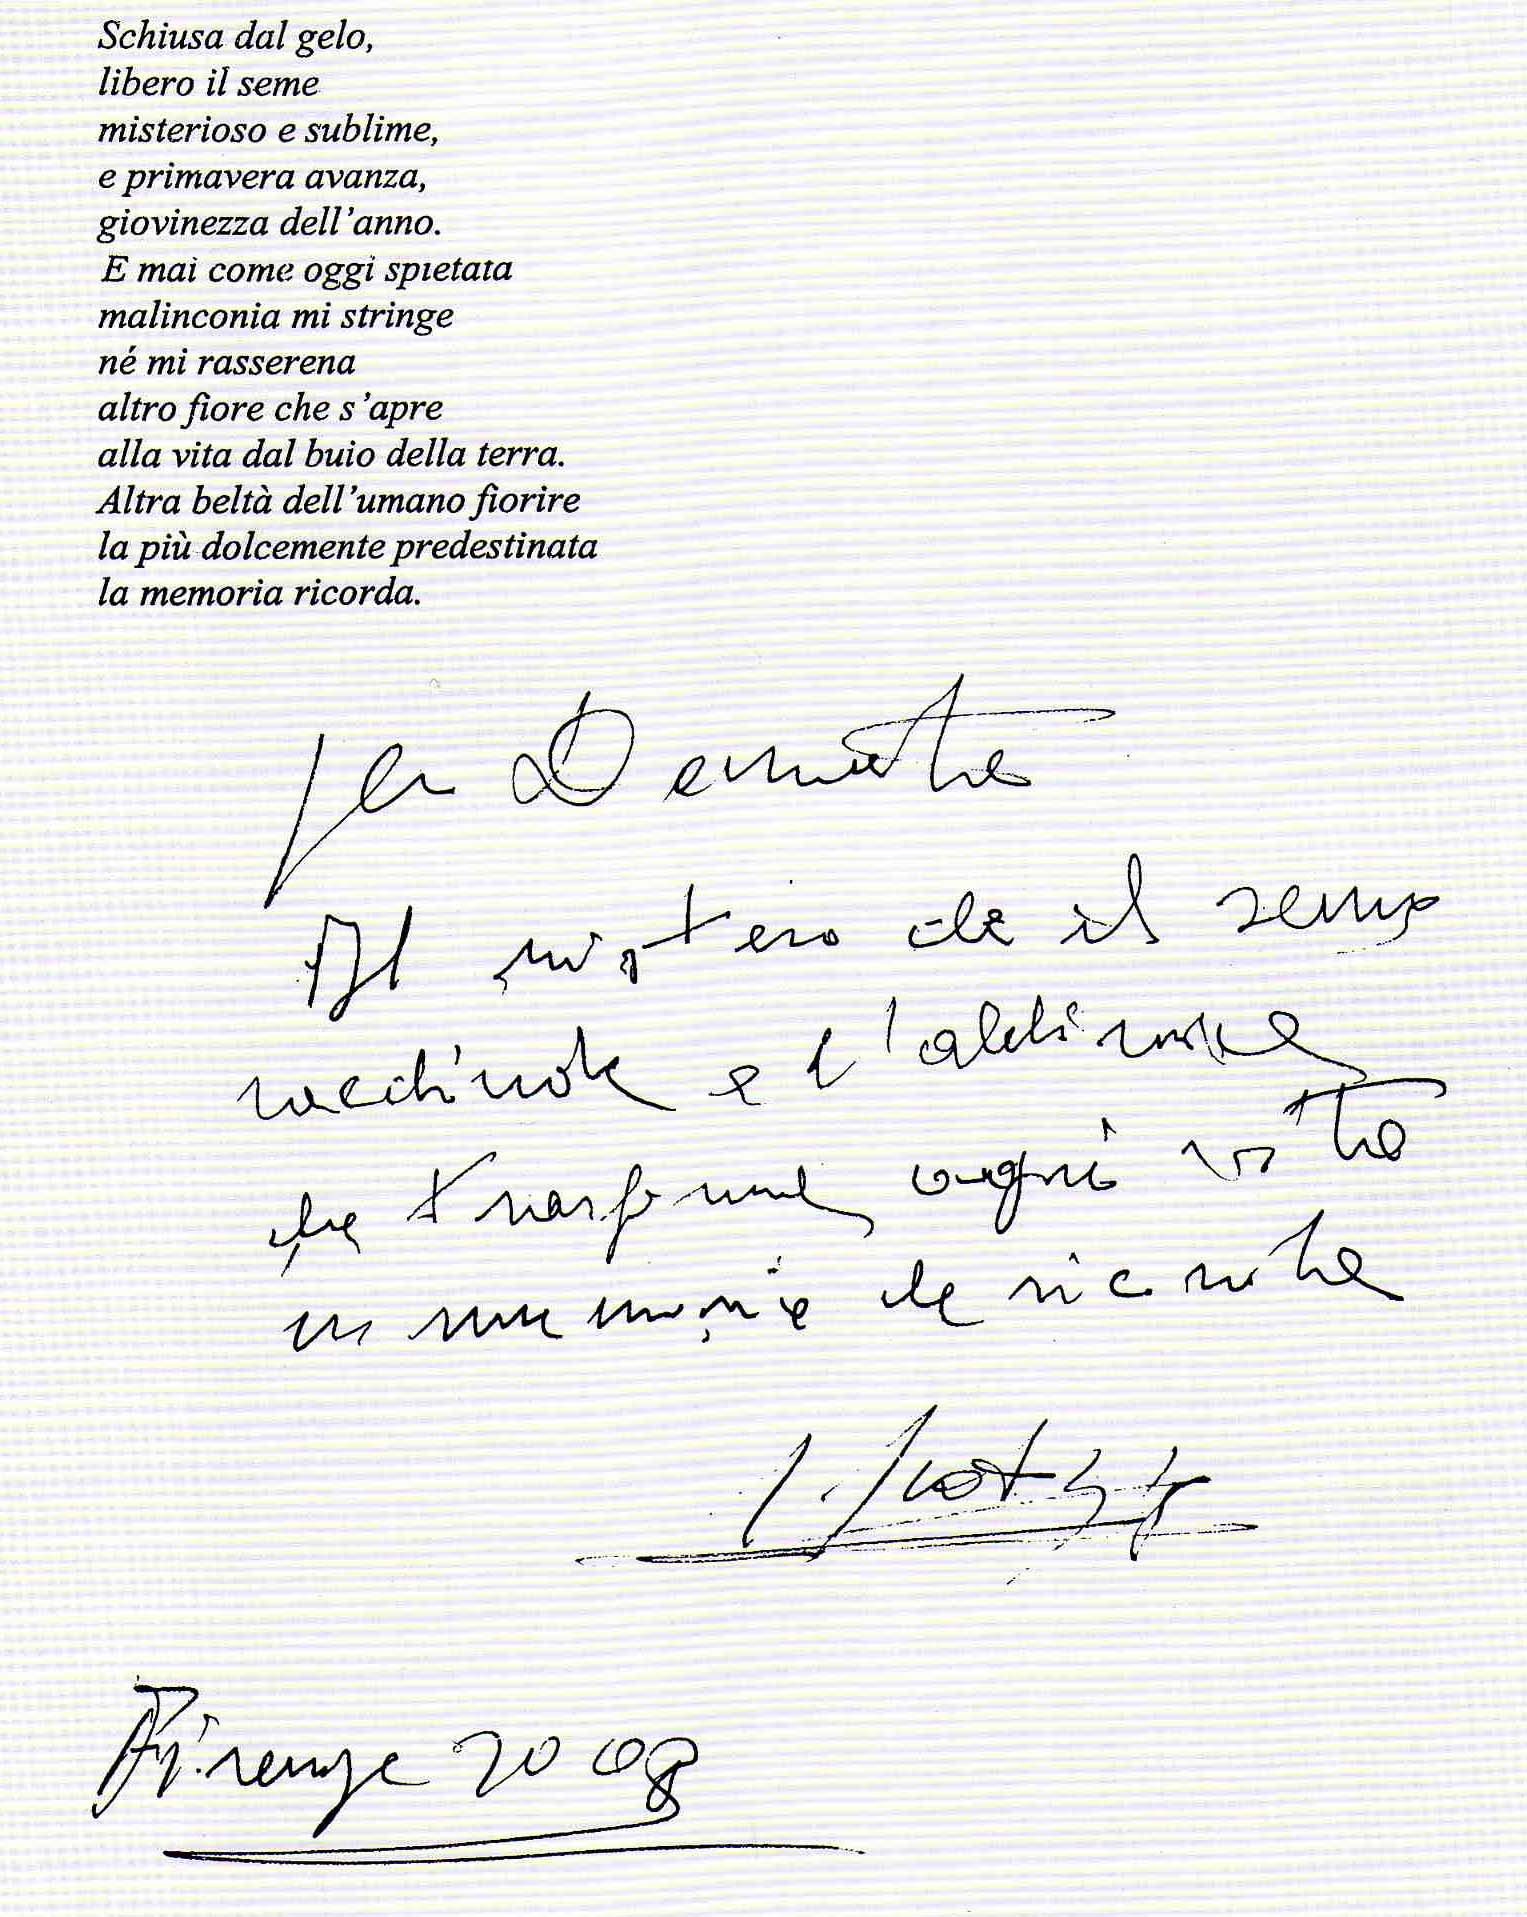 Schiusa dal gelo,
libero il seme
misterioso e sublime,
e primavera avanza,
giovinezza dell'anno.
E mai come oggi spietata
malinconia mi stringe
né mi rasserena
altro fiore che s'apre
alla vita dal buio della terra.
Altra beltà dell'umano fiorire
la più dolcemente predestinata
la memoria ricorda.
per Demetra
Al mistero che il seme
racchiude e l'
che trasforma ogni vita
in memoria
Firenze 2008